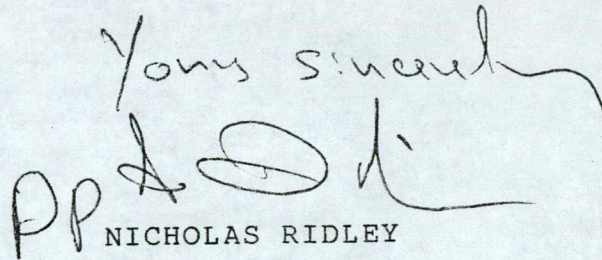 Yours sincerely
pp
NICHOLAS RIDLEY